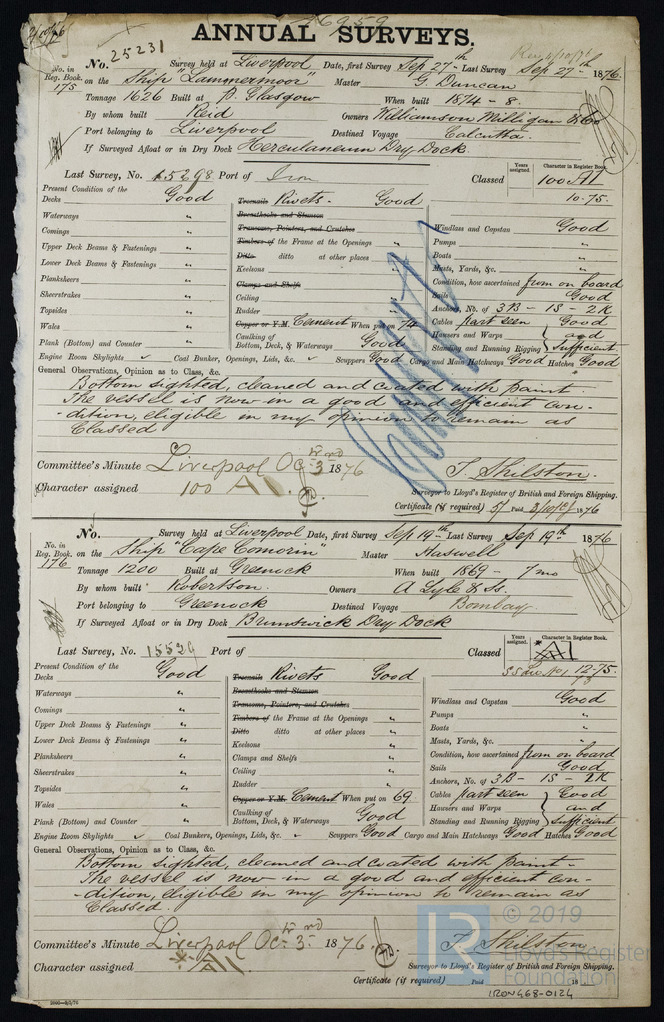 46959
ANNUAL SURVEYS.
No. 25231 Survey held at Liverpool Date, first Survey Sep 27th Last Survey Sep 27th 1876.
No. in Reg. Book. 175 on the Ship "Lammermoor" Master G. Duncan
Tonnage 1626 Built at P. Glasgow When built 1874 - 8.
By whom built Reid Owners Williamson Milligan & Co
Port belonging to Liverpool Destined Voyage Calcutta.
If Surveyed Afloat or in Dry Dock Herculaneum Dry Dock.
Last Survey, No. 15298 Port of Iron Classed Years assigned. Character in Register Book. 100 A1
10.75.
Present Condition of the Decks Good Treenails Rivets. Good
Waterways " Breasthooks and Stemson Windlass and Capstan Good
Comings " Transoms, Pointers, and Crutches Pumps "
Upper Deck Beams & Fastenings " Timbers of the Frame at the Openings " Boats "
Lower Deck Beams & Fastenings " Ditto ditto at other places " Masts, Yards, &c. "
Planksheers " Keelsons " Condition, how ascertained from on board
Sheerstrakes " Clamps and Shelfs Sails Good
Topsides " Ceiling " Anchors, No. of 3B - 1S - 2K
Wales " Rudder " Cables part seen Good
Copper or Y.M. Cement When put on 74 Hawsers and Warps and
Plank (Bottom) and Counter " Caulking of Bottom, Deck, & Waterways Good Standing and Running Rigging Sufficient
Engine Room Skylights ✓ Coal Bunker, Openings, Lids, &c. ✓ Scuppers Good Cargo and Main Hatchways Good Hatches Good
General Observations, Opinion as to Class, &c.
Bottom sighted, cleaned and coated with paint.
The vessel is now in a good and efficient con-
-dition, eligible in my opinion to remain as
Classed
Committee's Minute Liverpool Oct 3rd 1876 T. Shilston.
Character assigned 100 A1. Surveyor to Lloyd's Register of British and Foreign Shipping.
Certificate (if required) 5/ Paid 1876
No. Survey held at Liverpool Date, first Survey Sep 19th Last Survey Sep 19th 1876
No. in Reg. Book. 176 on the Ship "Cape Comorin" Master Haswell
Tonnage 1200 Built at Greenock When built 1869 - 7 mo
By whom built Robertson. Owners A Lyle & Ss.
Port belonging to Greenock Destined Voyage Bombay.
If Surveyed Afloat or in Dry Dock Brunswick Dry Dock
Last Survey, No. 15529 Port of Classed Years assigned. Character in Register Book. A1
12-75.
Present Condition of the Decks Good Treenails Rivets Good
Waterways " Breasthooks and Stemson Windlass and Capstan Good
Comings " Transoms, Pointers, and Crutches Pumps "
Upper Deck Beams & Fastenings " Timbers of the Frame at the Openings " Boats "
Lower Deck Beams & Fastenings " Ditto ditto at other places " Masts, Yards, &c. "
Planksheers " Keelsons " Condition, how ascertained from on board
Sheerstrakes " Clamps and Shelfs " Sails Good
Topsides " Ceiling " Anchors, No. of 3B - 1S - 2K
Wales " Rudder " Cables part seen Good
Copper or Y.M. Cement When put on 69 Hawsers and Warps and
Plank (Bottom) and Counter " Caulking of Bottom, Deck, & Waterways Good Standing and Running Rigging Sufficient
Engine Room Skylights ✓ Coal Bunkers, Openings, Lids, &c. ✓ Scuppers Good Cargo and Main Hatchways Good Hatches Good
General Observations, Opinion as to Class, &c.
Bottom sighted, cleaned and coated with paint -
The vessel is now in a good and efficient con-
-dition, eligible in my opinion to remain as
Classed.
© 2019
Committee's Minute Liverpool Oct 3rd 1876. T. Shilston
Lloyd's Register Foundation
Character assigned A1 Surveyor to Lloyd's Register of British and Foreign Shipping.
Certificate (if required) Paid 18
IRON468-0124